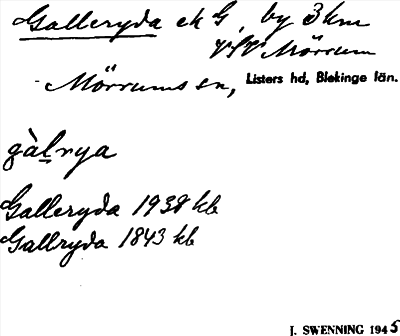 Galleryda ek G, by 3 km
VSV Mörrum
Mörrums sn, Listers hd, Blekinge län.
gàḻrya
Galleryda 1938 kb
Gallryda 1843 kb
J. SWENNING 1945